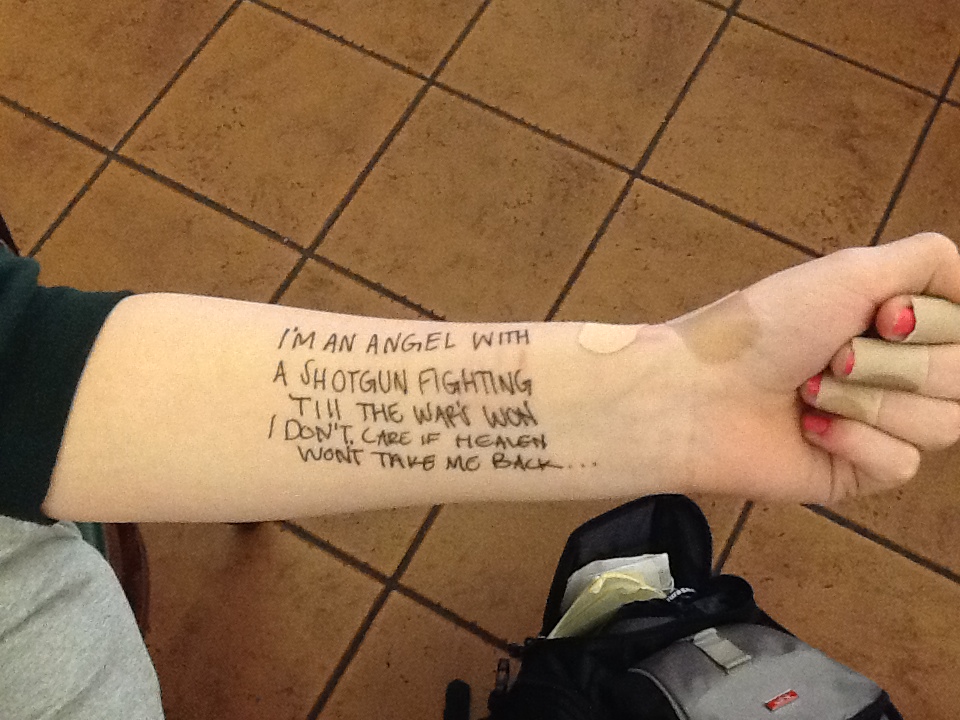 I'M AN ANGEL WITH
A SHOTGUN FIGHTING
TIll THE WAR'S WON
I DON'T CARE IF HEAVEN
WON'T TAKE ME BACK...